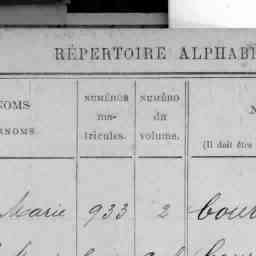 RÉPERTOIRE ALPHAB
NOMS
NUMÉROS
ma-
tricules.
NUMÉRO
du
volume.
(Il doit être
Marie 933 2